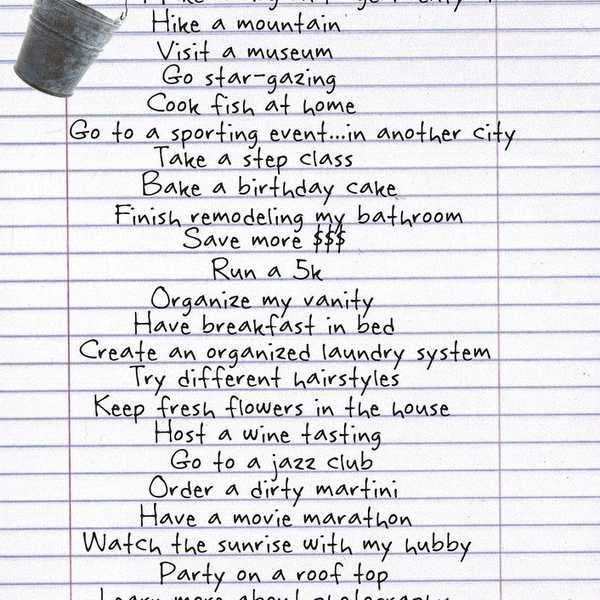 Hike a mountain
Visit a museum
Go star-gazing
Cook fish at home
Go to a sporting event...in another city
Take a step class
Bake a birthday cake
Finish remodeling my bathroom
Save more $$$
Run a 5k
Organize my vanity
Have breakfast in bed
Create an organized laundry system
Try different hairstyles
Keep fresh flowers in the house
Host a wine tasting
Go to a jazz club
Order a dirty martini
Have a movie marathon
Watch the sunrise with my hubby
Party on a roof top
Learn more about photography